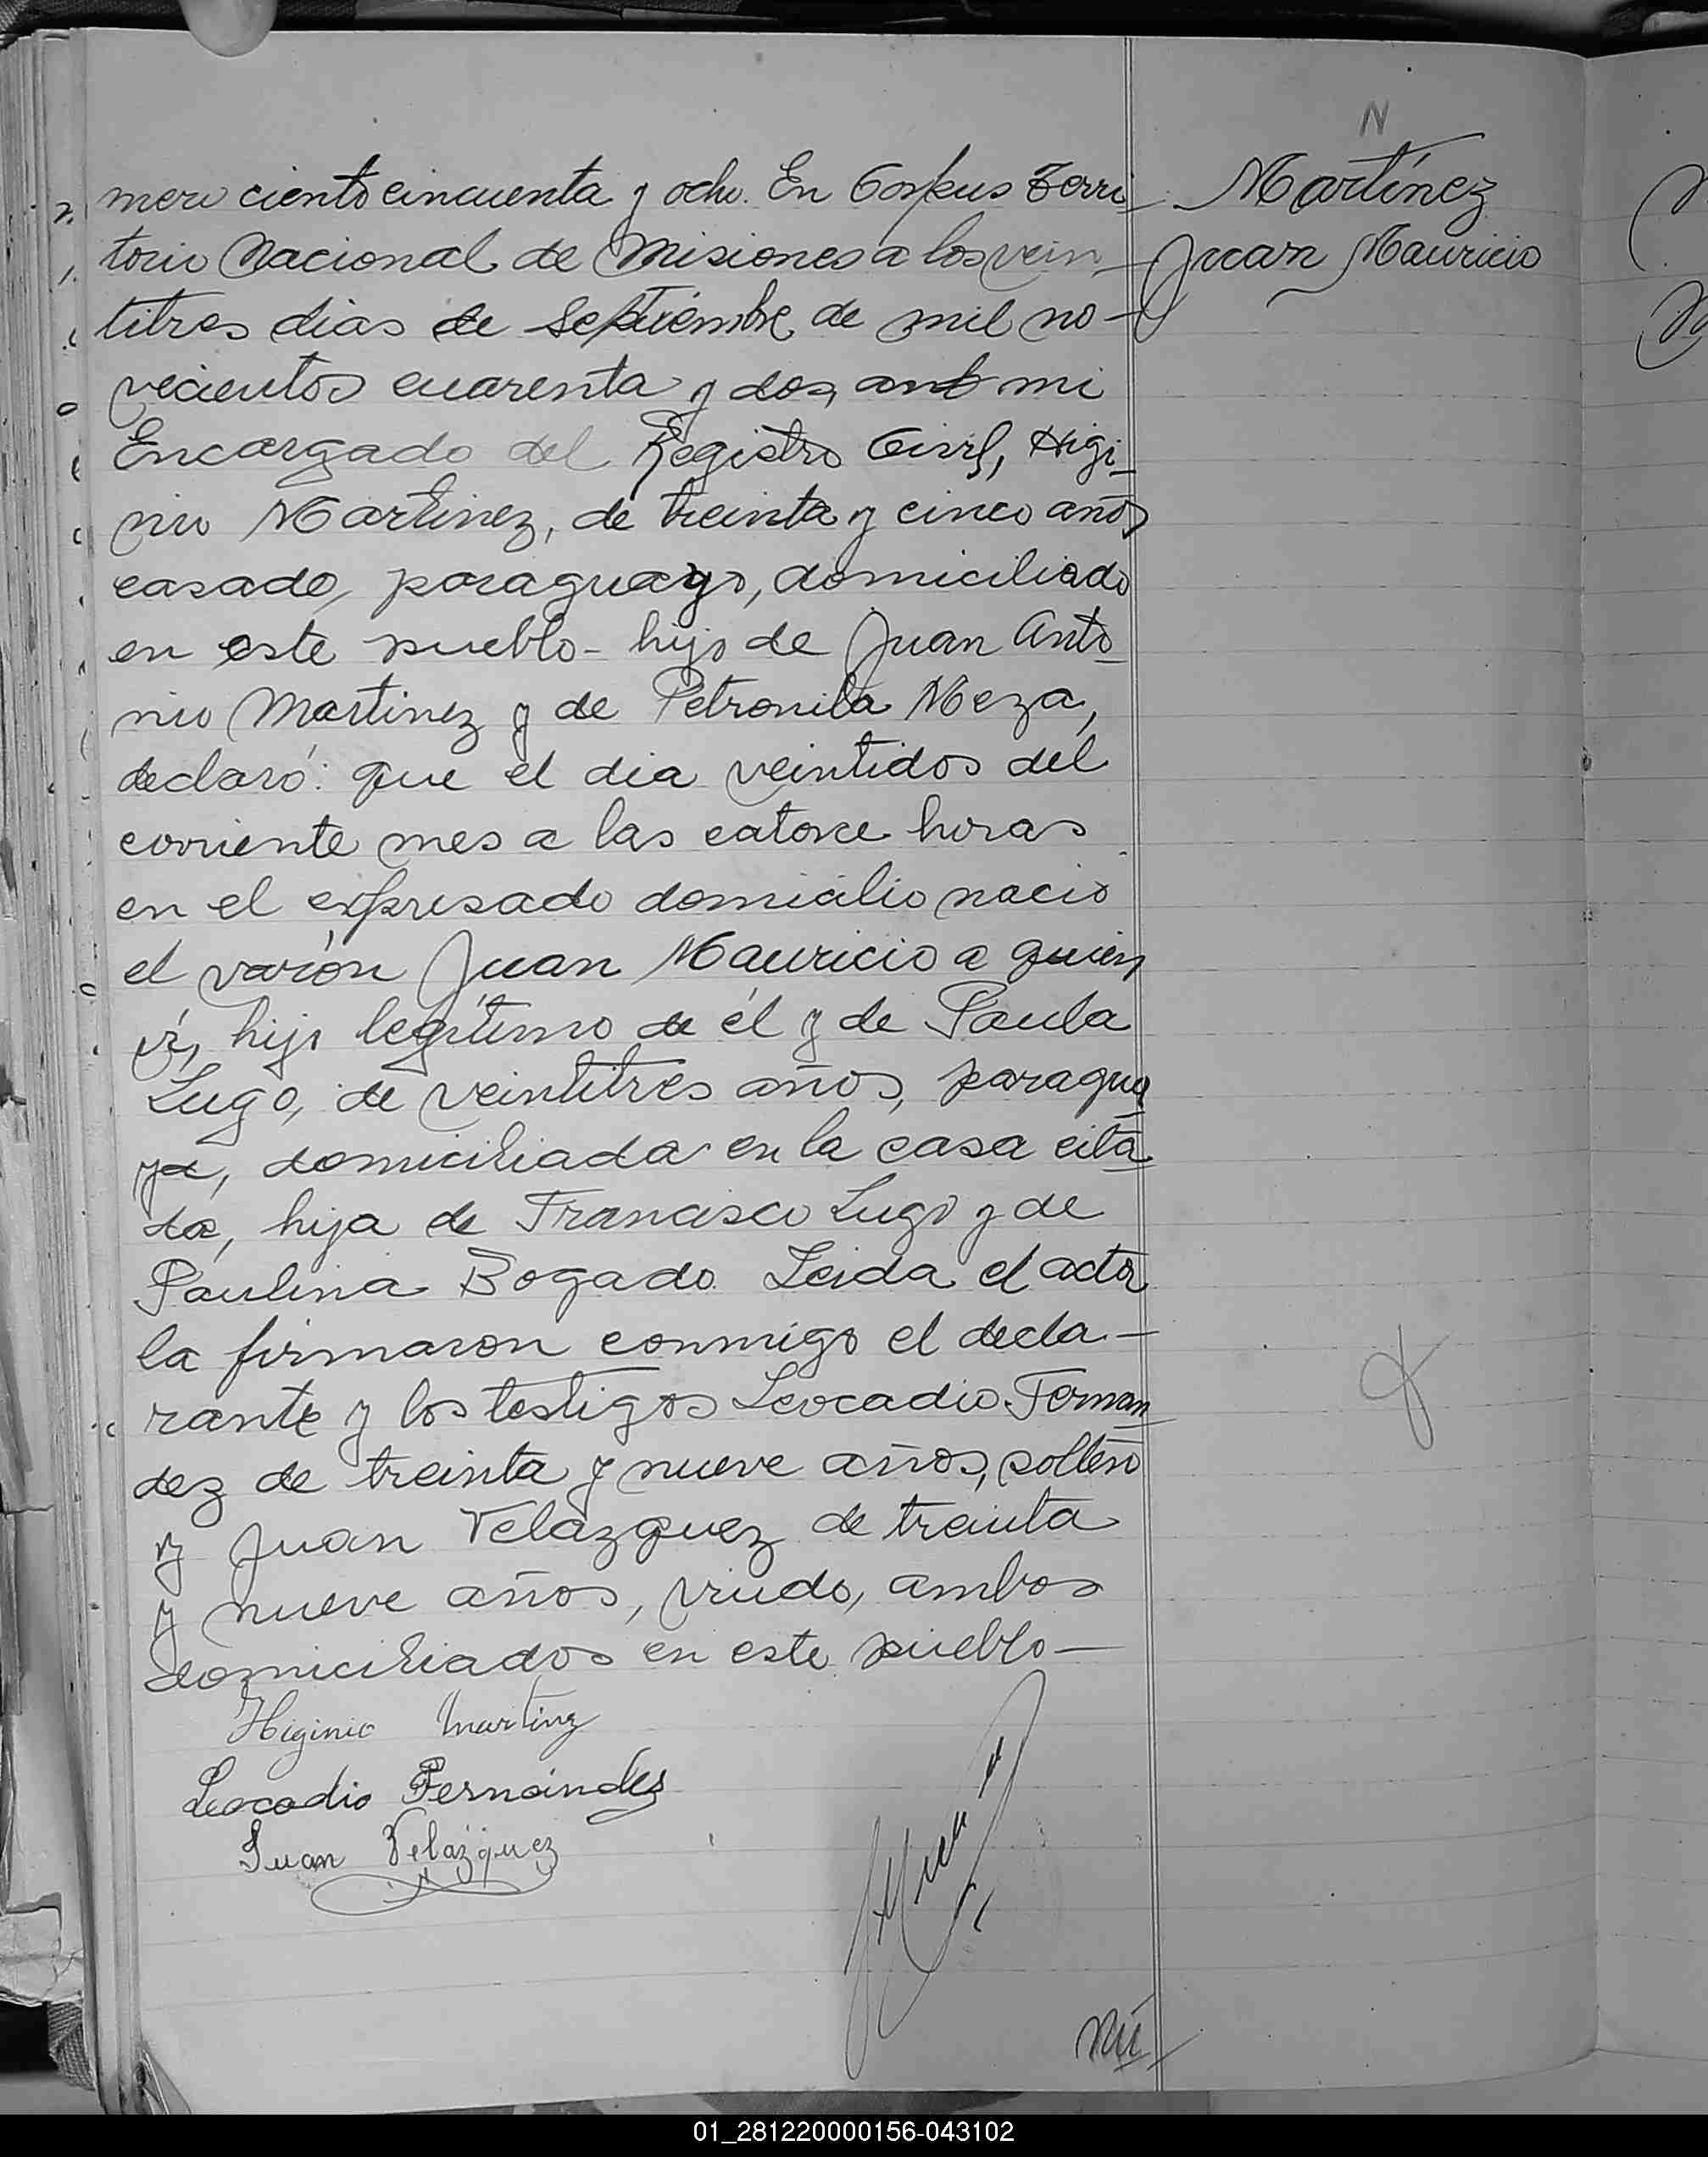 N
Martínez
Juan Mauricio
mero ciento cincuenta y ocho. En Corpus Terri-
torio Nacional de Misiones a los vein-
titres dias de Septiembre de mil no-
vecientos cuarenta y dos, ante mi
Encargado del Registro Civil, Higi-
nio Martinez, de treinta y cinco años
casado, paraguayo, domiciliado
en este pueblo - hijo de Juan Anto-
nio Martinez y de Petronila Meza,
declaró: que el dia veintidos del
corriente mes a las catorce horas
en el expresado domicilio nació
el varón Juan Mauricio a quien
ví, hijo legítimo de él y de Paula
Lugo, de veintitrés años, paragua
ya, domiciliada en la casa cita
da, hija de Francisco Lugo y de
Paulina Bogado. Leida el acta
la firmaron conmigo el decla-
rante y los testigos Leocadio Fernan
dez de treinta y nueve años, soltero
y Juan Velazquez de treinta
y nueve años, viudo, ambos
domiciliados en este pueblo -
Higinio Martinz
Leocadio Fernández
Juan Velázquez
Nú-
01_281220000156-043102